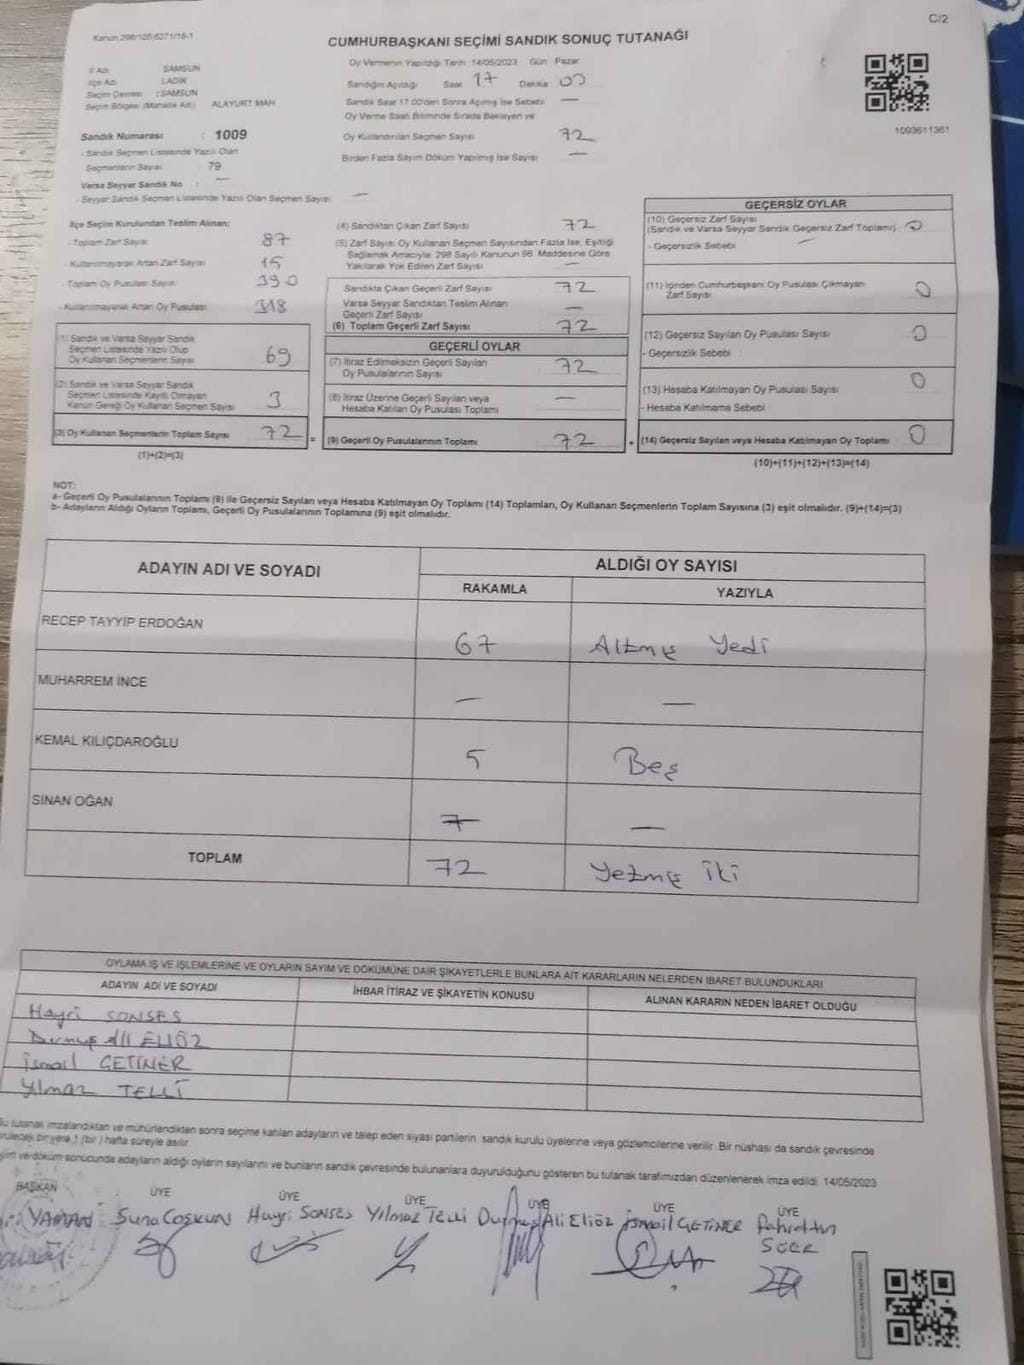 C/2
Kanun 298/105;6271/18-1
CUMHURBAŞKANI SEÇİMİ SANDIK SONUÇ TUTANAĞI
İl Adı SAMSUN
İlçe Adı LADİK
Seçim Çevresi : SAMSUN
Seçim Bölgesi (Mahalle Adı) ALAYURT MAH
Oy Vermenin Yapıldığı Tarih 14/05/2023 Gün Pazar
Sandığın Açıldığı Saat 17 Dakika 00
Sandık Saat 17.00'den Sonra Açılmış İse Sebebi —
Oy Verme Saati Bitiminde Sırada Bekleyen ve
Oy Kullandırılan Seçmen Sayısı 72
Birden Fazla Sayım Döküm Yapılmış İse Sayısı —
1093611361
Sandık Numarası : 1009
- Sandık Seçmen Listesinde Yazılı Olan
Seçmenlerin Sayısı 79
Varsa Seyyar Sandık No : —
- Seyyar Sandık Seçmen Listesinde Yazılı Olan Seçmen Sayısı —
İlçe Seçim Kurulundan Teslim Alınan:
- Toplam Zarf Sayısı 87
- Kullanılmayarak Artan Zarf Sayısı 15
- Toplam Oy Pusulası Sayısı 390
- Kullanılmayarak Artan Oy Pusulası 318
(1) Sandık ve Varsa Seyyar Sandık
Seçmen Listesinde Yazılı Olup
Oy Kullanan Seçmenlerin Sayısı 69
(2) Sandık ve Varsa Seyyar Sandık
Seçmen Listesinde Kayıtlı Olmayan
Kanun Gereği Oy Kullanan Seçmen Sayısı 3
(3) Oy Kullanan Seçmenlerin Toplam Sayısı 72 =
(1)+(2)=(3)
(4) Sandıktan Çıkan Zarf Sayısı 72
(5) Zarf Sayısı Oy Kullanan Seçmen Sayısından Fazla İse, Eşitliği
Sağlamak Amacıyla; 298 Sayılı Kanunun 98. Maddesine Göre
Yakılarak Yok Edilen Zarf Sayısı —
Sandıkta Çıkan Geçerli Zarf Sayısı 72
Varsa Seyyar Sandıktan Teslim Alınan
Geçerli Zarf Sayısı —
(6) Toplam Geçerli Zarf Sayısı 72
GEÇERLİ OYLAR
(7) İtiraz Edilmeksizin Geçerli Sayılan
Oy Pusulalarının Sayısı 72
(8) İtiraz Üzerine Geçerli Sayılan veya
Hesaba Katılan Oy Pusulası Toplamı —
(9) Geçerli Oy Pusulalarının Toplamı 72 +
GEÇERSİZ OYLAR
(10) Geçersiz Zarf Sayısı
(Sandık ve Varsa Seyyar Sandık Geçersiz Zarf Toplamı) : 0
- Geçersizlik Sebebi —
(11) İçinden Cumhurbaşkanı Oy Pusulası Çıkmayan
Zarf Sayısı 0
(12) Geçersiz Sayılan Oy Pusulası Sayısı 0
- Geçersizlik Sebebi :
(13) Hesaba Katılmayan Oy Pusulası Sayısı 0
- Hesaba Katılmama Sebebi
(14) Geçersiz Sayılan veya Hesaba Katılmayan Oy Toplamı 0
(10)+(11)+(12)+(13)=(14)
NOT:
a- Geçerli Oy Pusulalarının Toplamı (9) ile Geçersiz Sayılan veya Hesaba Katılmayan Oy Toplamı (14) Toplamları, Oy Kullanan Seçmenlerin Toplam Sayısına (3) eşit olmalıdır. (9)+(14)=(3)
b- Adayların Aldığı Oyların Toplamı, Geçerli Oy Pusulalarının Toplamına (9) eşit olmalıdır.
ADAYIN ADI VE SOYADI
ALDIĞI OY SAYISI
RAKAMLA YAZIYLA
RECEP TAYYİP ERDOĞAN 67 Altmış Yedi
MUHARREM İNCE — —
KEMAL KILIÇDAROĞLU 5 Beş
SİNAN OĞAN —
TOPLAM 72 Yetmiş İki
OYLAMA İŞ VE İŞLEMLERİNE VE OYLARIN SAYIM VE DÖKÜMÜNE DAİR ŞİKAYETLERLE BUNLARA AİT KARARLARIN NELERDEN İBARET BULUNDUKLARI
ADAYIN ADI VE SOYADI İHBAR İTİRAZ VE ŞİKAYETİN KONUSU ALINAN KARARIN NEDEN İBARET OLDUĞU
Hayri SONSES
Durmuş Ali ELİÖZ
İsmail GETİNER
Yılmaz TELLİ
Bu tutanak imzalandıktan ve mühürlendikten sonra seçime katılan adayların ve talep eden siyasi partilerin sandık kurulu üyelerine veya gözlemcilerine verilir. Bir nüshası da sandık çevresinde
bir yere 1 (bir) hafta süreyle asılır.
ve döküm sonucunda adayların aldığı oyların sayılarını ve bunların sandık çevresinde bulunanlara duyurulduğunu gösteren bu tutanak tarafımızdan düzenlenerek imza edildi. 14/05/2023
BAŞKAN ÜYE ÜYE ÜYE ÜYE ÜYE ÜYE
YAMAN Suna COŞKUN Hayri SONSES Yılmaz Telli Durmuş Ali Eliöz İsmail GETİNER Fahrettin